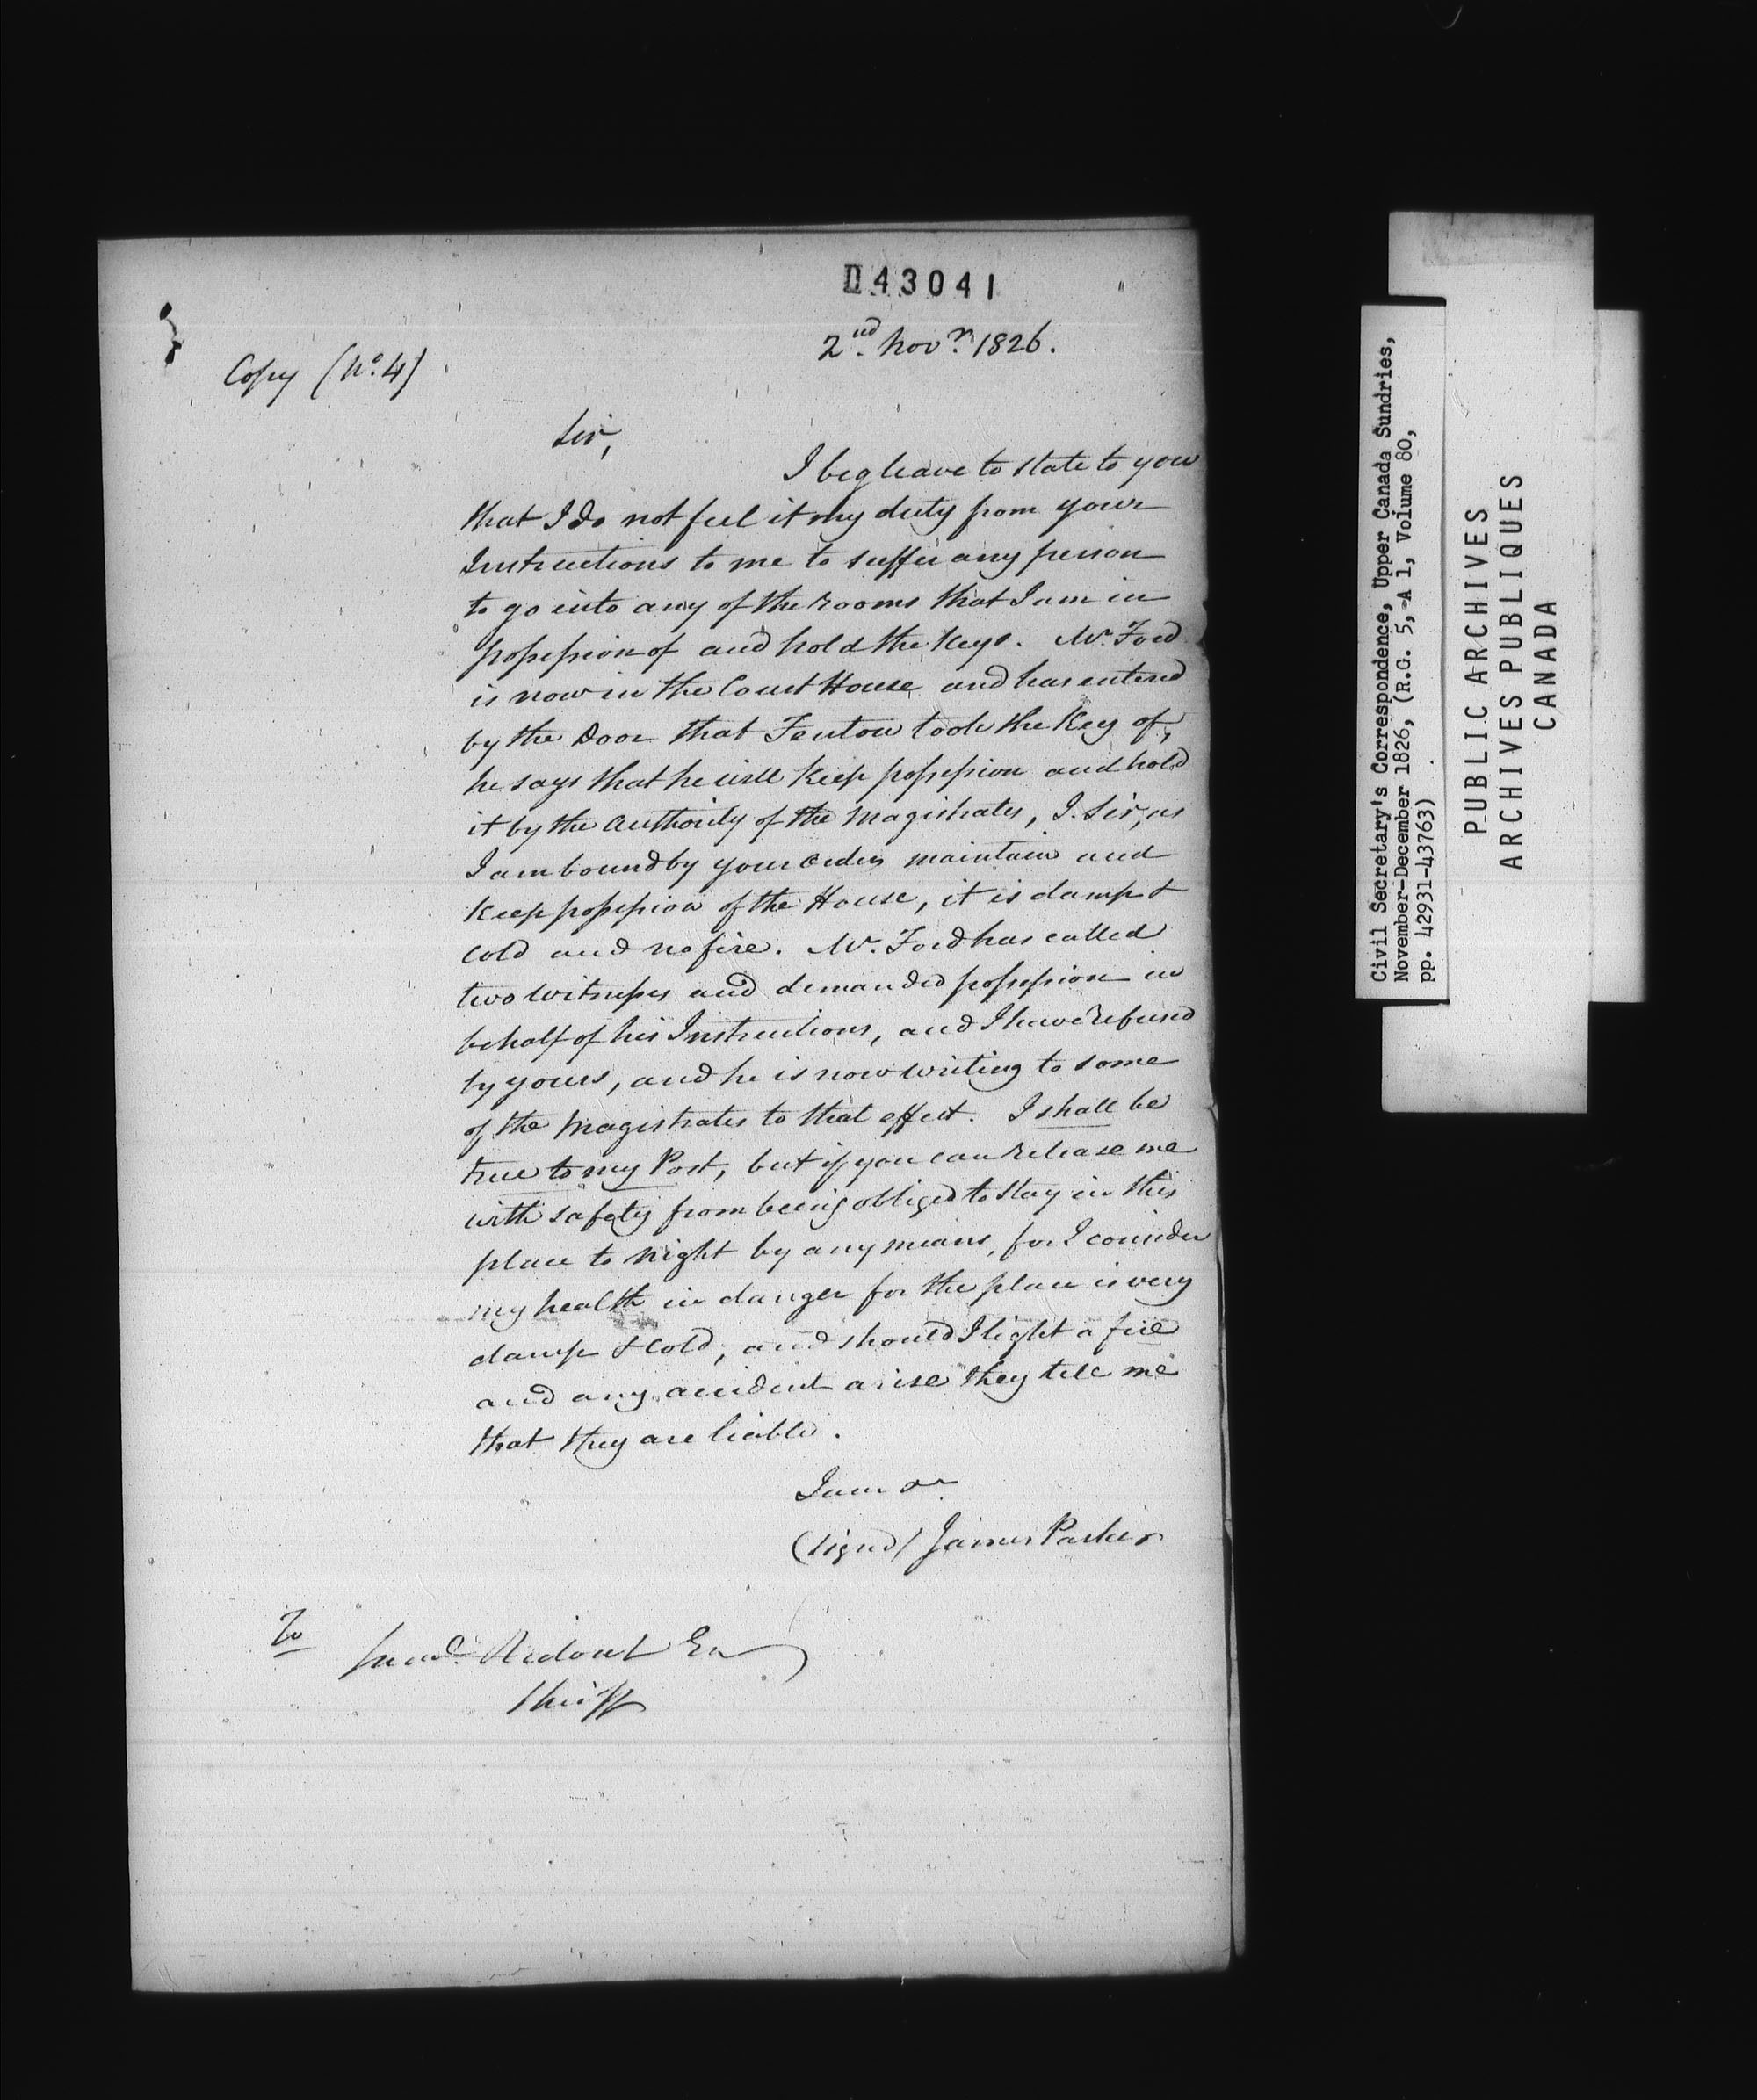 043041
2nd. Novr. 1826.
Copy (No. 4)
Sir,
I beg leave to state to you
that I do not feel it my duty from your
Instructions to me to suffer any person
to go into any of the rooms that I am in
possession of and hold the Keys. Mr. Ford
is now in the Court House and has entered
by the Door that Fenton took the Key of,
he says that he will Keep possession and hold
it by the authority of the Magistrates, I. Sir, as
I am bound by your orders maintain and
Keep possession of the House, it is damp &
cold and no fire. Mr. Ford has called
two witnesses and demanded possession in
behalf of his Instructions, and I have refused
by yours, and he is now writing to some
of the Magistrates to that effect. I shall be
true to my Post, but if you can release me
with safety from being obliged to stay in this
place to night by any means, for I consider
my health in danger for the place is very
damp & cold, and should I light a fire
and any accident arise they tell me
that they are liable.
I am &c.
(signed) James Parker
To
Ridout Esq
Sheriff
Civil Secretary's Correspondence, Upper Canada Sundries,
November-December 1826, (R.G. 5, A 1, Volume 80,
pp. 42931-43763)
PUBLIC ARCHIVES
ARCHIVES PUBLIQUES
CANADA